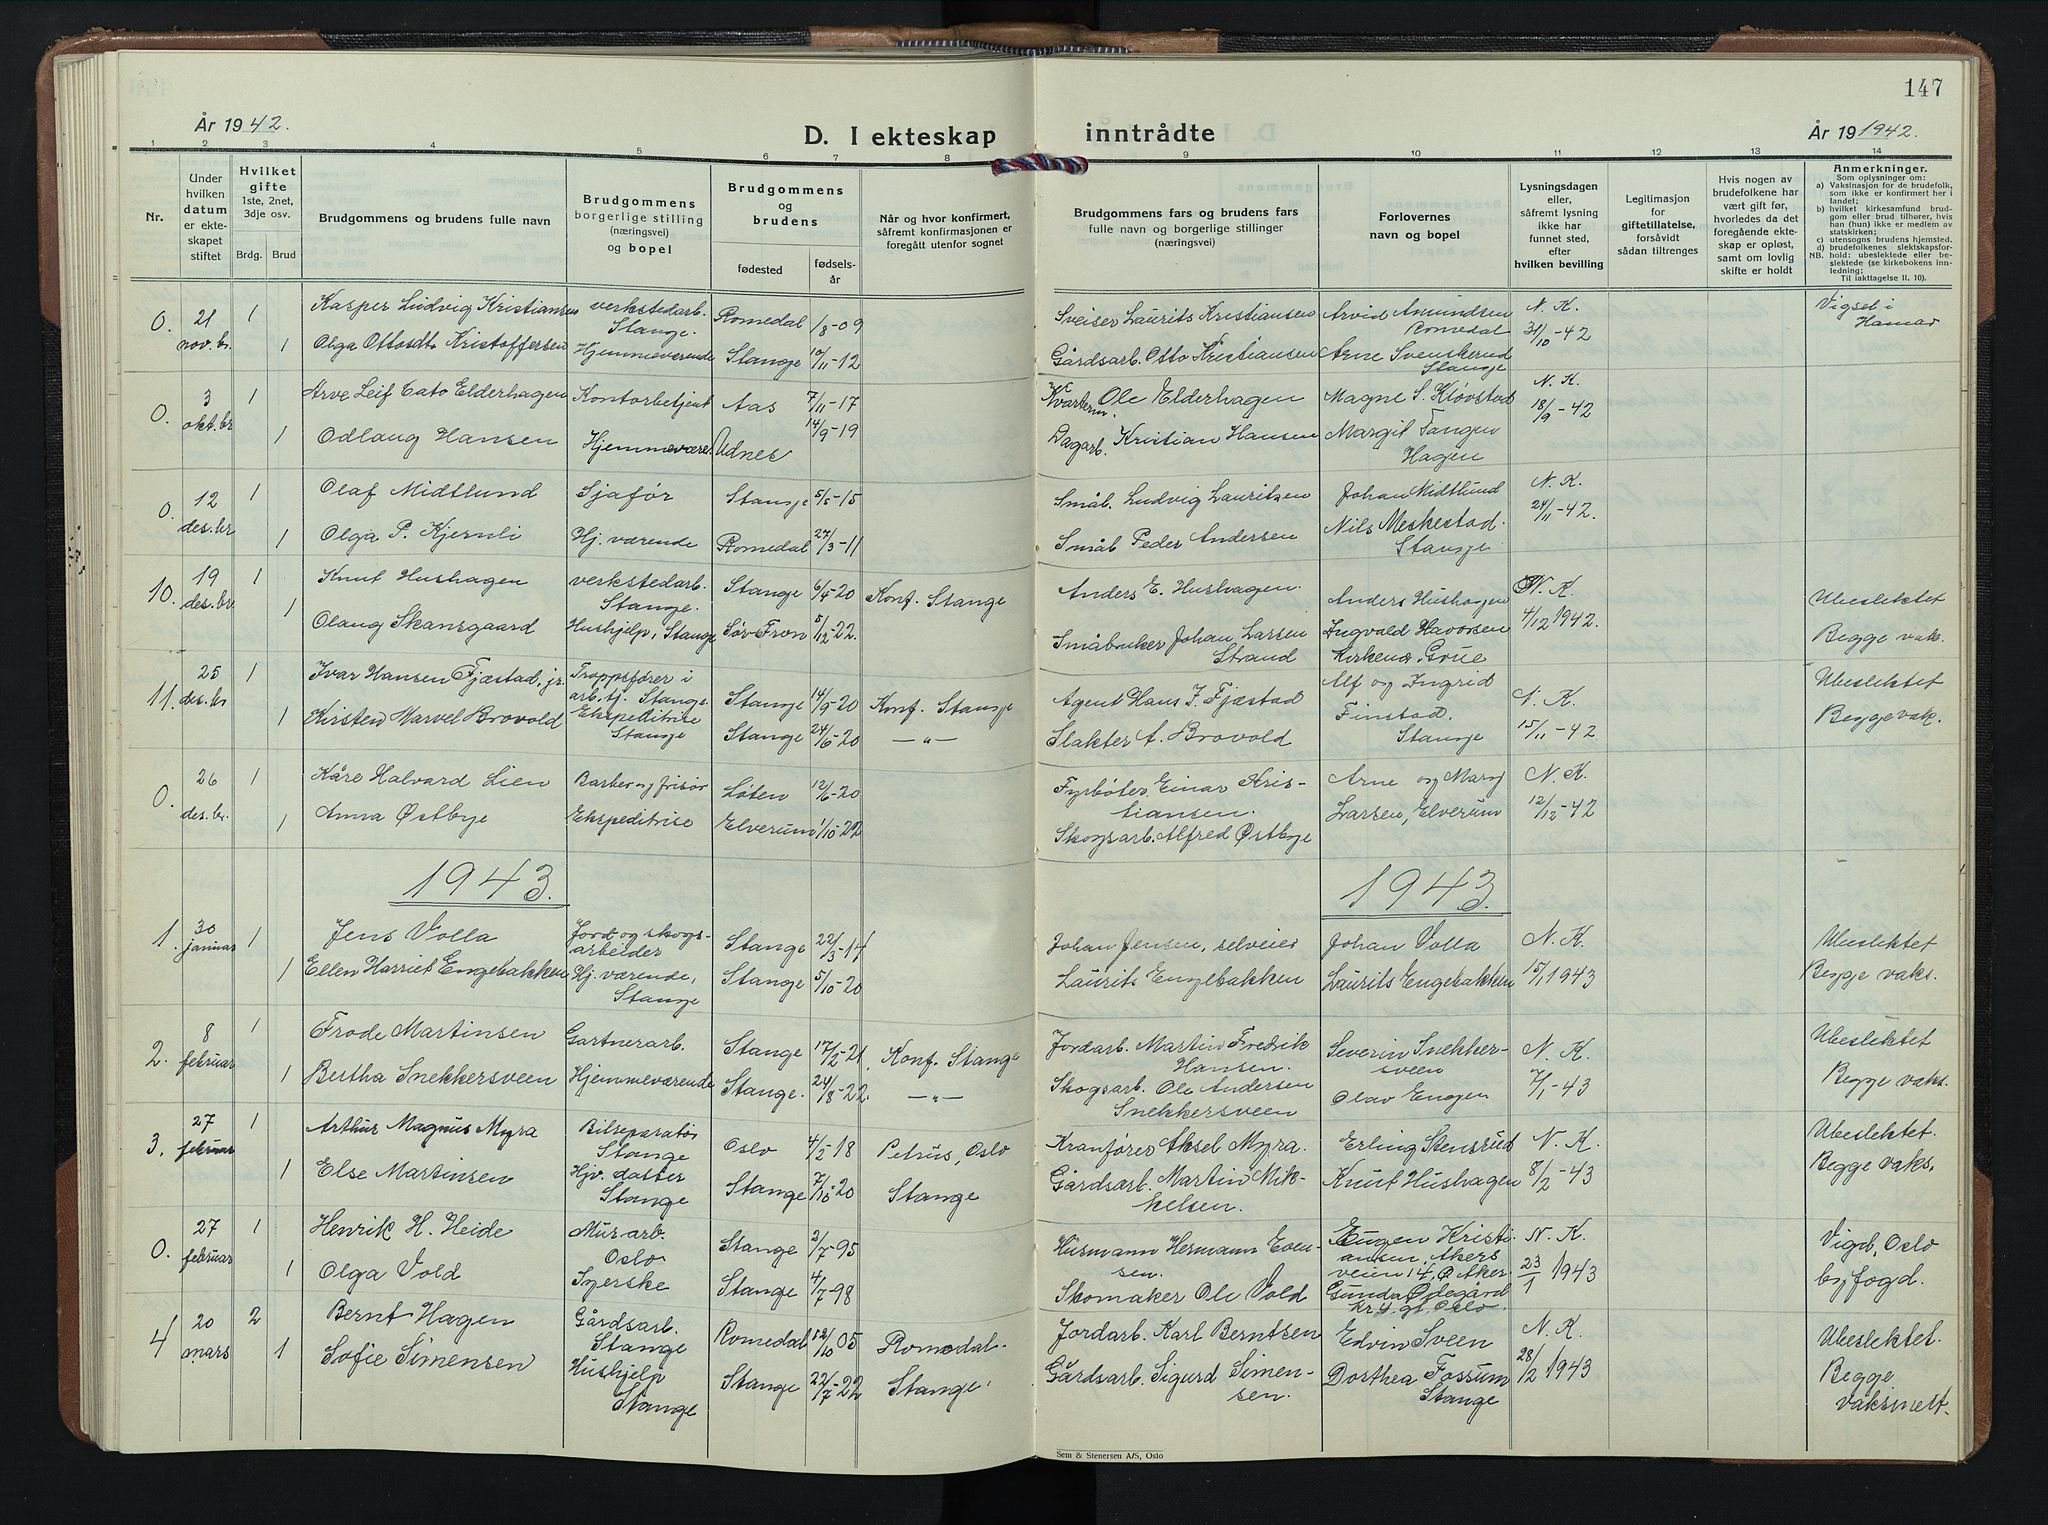 147
År 1942.
D. I ekteskap inntrådte
År 19 1942.
1 2 3 4 5 6 7 8 9 10 11 12 13 14
Nr.
Under hvilken datum er ekteskapet stiftet
Hvilket gifte 1ste, 2net, 3dje osv.
Brdg. Brud
Brudgommens og brudens fulle navn
Brudgommens borgerlige stilling (næringsvei) og bopel
Brudgommens og brudens
fødested
fødselsår
Når og hvor konfirmert, såfremt konfirmasjonen er foregått utenfor sognet
Brudgommens fars og brudens fars fulle navn og borgerlige stillinger (næringsvei)
Forlovernes navn og bopel
Lysningsdagen eller, såfremt lysning ikke har funnet sted, efter hvilken bevilling
Legitimasjon for giftetillatelse, forsåvidt sådan tiltrenges
Hvis nogen av brudefolkene har vært gift før, hvorledes da det foregående ekteskap er opløst, samt om lovlig skifte er holdt
Anmerkninger.
Som oplysninger om:
a) Vaksinasjon for de brudefolk, som ikke er konfirmert her i landet;
b) hvilket kirkesamfund brudgom eller brud tilhører, hvis han (hun) ikke er medlem av statskirken;
c) utensogns brudens hjemsted.
d) brudefolkenes slektskapsforhold: ubeslektede eller beslektede (se kirkebokens innledning;
NB. Til iakttagelse II. 10).
0. 21 nov.br. 1 Kasper Ludvig Kristiansen verkstedarb. Stange. Romedal 1/8-09 Sveiser Laurits Kristiansen Arvid Amundsen Romedal N. K. 31/10-42 Vigsel i Hamar
1 Olga Ottosdtr Kristoffersen Hjemmeværende Stange 10/11-12 Gårdsarb. Otto Kristiansen Arne Svenskerud Stange
0. 3 okt.br 1 Arve Leif Cato Elderhagen Kontorbetjent Aas 7/11-17 Ole Elderhagen Magne S. Kløvstad N. K. 18/9-42
1 Odlaug Hansen Hjemmevære Udnes 14/9-19 Dagarb. Kristian Hansen Margit Tangen Hagen
0. 12 des.br 1 Olaf Midtlund Sjafør Stange 5/5-15 Småb. Ludvig Lauritsen Johan Midtlund N. K. 24/11-42.
1 Olga P. Kjernli Hj. værende Romedal 27/3-11 Småb Peder Andersen Nils Meskestad. Stange
10. 19 des.br 1 Knut Hushagen verkstedarb. Stange. Stange 6/4-20 Konf. Stange Anders E. Hushagen. Anders Hushagen N. K. 4/12 1942. Ubeslektet
1 Olaug Skansgaard Hushjelp, Stange Sør Fron 5/12-22. Småbruker Johan Larsen Strand Ingvald Havorsen Kirkenær Grue Begge vak.
11. 25 des.br 1 Ivar Hansen Fjæstad, jr. Troppsfører i arb.tj. Stange. Stange 14/9-20 Konf. Stange Agent Hans J. Fjæstad Alf og Ingrid Finstad. Stange N. K. 15/11-42 Ubeslektet
1 Kirsten Marvel Brovold Ekspeditrise Stange Stange 24/6-20 —"— Slakter A. Brovold Begge vak.
0. 26 des.br. 1 Kåre Halvard Lien Barber og frisør Løten 12/6-20 Fyrbøter Einar Kristiansen. Arne og Mary Larsen, Elverum N. K. 12/12-42
1 Anna Østbye Ekspeditrise Elverum 1/10-22 Skogsarb. Alfred Østbye
1943. 1943.
1. 30 januar 1 Jens Volla Jord og skogsarbeider Stange 22/3-14 Johan Jensen, selveier Johan Volla N. K. 15/1 1943 Ubeslektet
1 Ellen Harriet Engebakken Hj. værende, Stange Stange 5/10-20 Laurits Engebakken Laurits Engebakken Begge vaks.
2. 8 februar 1 Frode Martinsen Gartnerarb. Stange 17/2-21 Konf. Stange Jordarb. Martin Fredrik Hansen. Severin Snekkersveen N. K. 7/1-43 Ubeslektet
1 Bertha Snekkersveen Hjemmeværende Stange. 24/8-22. —"— Skogsarb. Ole Andersen Snekkersveen Olav Engen Begge vaks.
3. 27 februar 1 Arthur Magnus Myra Bilreparatør Stange Oslo 4/2-18 Petrus, Oslo Kranfører Aksel Myra. Erling Stensrud N. K. 8/2-43 Ubeslektet.
1 Else Martinsen Hjv. datter Stange Stange 7/10-20 Stange Gårdsarb. Martin Mikkelsen. Knut Hushagen Begge vaks.
0. 27 februar 1 Henrik H. Heide Mur.arb. Oslo Stange 2/7-95 Husmann Hermann Evensen. Eugen Kristiansen, Akersveien 14, Ø. Aker. N. K. 23/1 1943 Vigsl, Oslo byfogd.
1 Olga Vold Syerske Stange 4/7-98 Skomaker Ole Vold Gunda Ødegård Oslo.
4 20 mars 2 Bernt Hagen Gårdsarb. Stange Romedal 12/10 05 Romedal. Jordarb. Karl Berntsen Edvin Sveen N. K. 28/2 1943 Ubeslektet.
1 Sofie Simensen Hushjelp Stange Stange 22/7-22 Stange. Gårdsarb. Sigurd Simensen. Dorthea Fossum Stange Begge vaksinert.
Sem & Stenersen A/S, Oslo